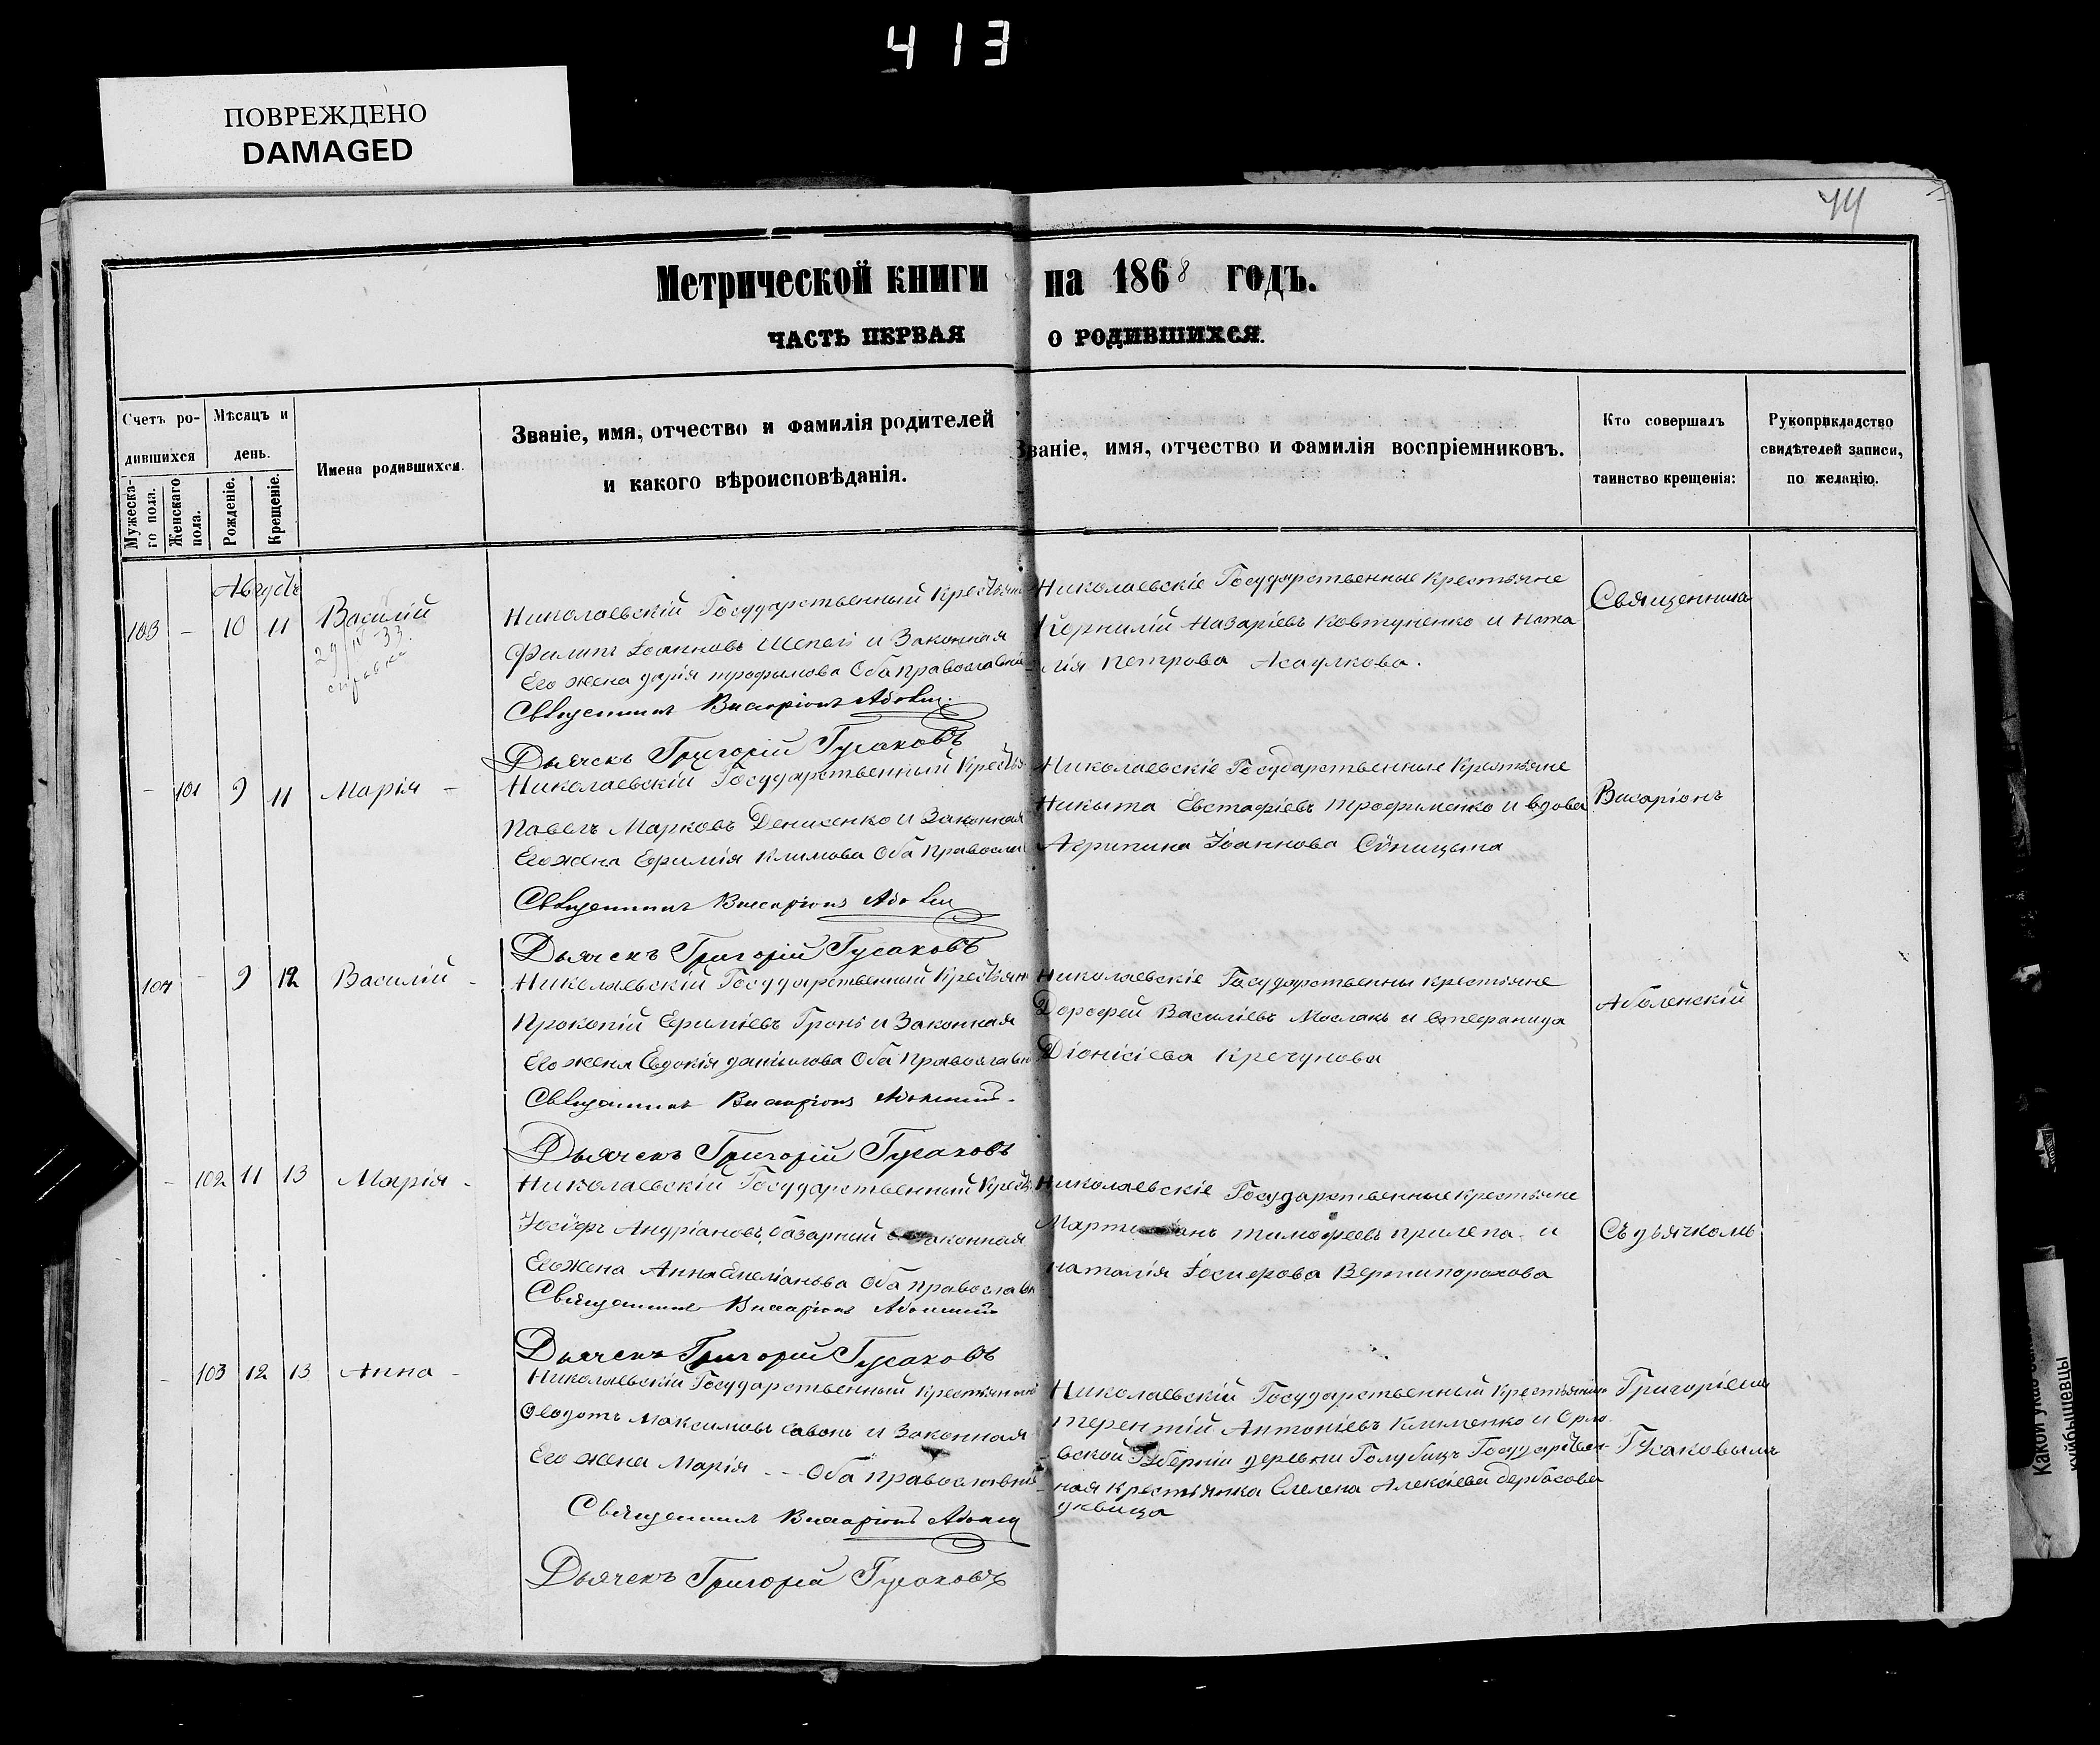 413
ПОВРЕЖДЕНО
DAMAGED
44
Метрической книги на 1868 годъ.
ЧАСТЬ ПЕРВАЯ О РОДИВШИХСЯ.
Счетъ ро-
дившихся
Мужеска-
го пола.
Женскаго
пола.
Мѣсяцъ и
день.
Рожденіе.
Крещеніе.
Имена родившихся.
Званіе, имя, отчество и фамилія родителей
и какого вѣроисповѣданія.
Званіе, имя, отчество и фамилія воспріемниковъ.
Кто совершалъ
таинство крещенія:
Рукоприкладство
свидѣтелей записи,
по желанію.
Августъ
103 – 10 11 Василій
29/IV-33.
справка
Николаевскій Государственный Крестьян
Филипъ Іоанновъ и Законная
Его жена дарія трофимова Оба православн
Священникъ Висаріонъ
Дьячекъ Григорій Гусаковъ
Николаевскіе Государственные крестьяне
Корнилій Назаріевъ Ковтуненко и Ната
лія петрова Асаулкова.
Священникъ
– 101 9 11 Марія –
Николаевскій Государственный Крестья
Павелъ Марковъ Денисенко и Законная
Его жена Ефимія климова Оба православ
Священникъ Висаріонъ
Дьячекъ Григорій Гусаковъ
Николаевскіе Государственные Крестьяне
Никита Евстафіевъ трофименко и вдова
Агрипина Іоаннова Синицына
Висаріонъ
104 – 9 12 Василій –
Николаевскій Государственный Крестьян
Прокопій Ефиміевъ Гронь и Законная
Его жена Евдокія даніилова Оба православн
Священникъ Висаріонъ
Дьячекъ Григорій Гусаковъ
Николаевскіе Государственны крестьяне
Дорофей Василіевъ Маслакъ и стефанида
Діонісіева Кречунова
Аболенскій
– 102 11 13 Марія –
Николаевскій Государственный Крест
Іосифъ Андріановъ базарный законная
Его жена Анна Емеліанова Оба православн
Священникъ Висаріонъ
Дьячекъ Григорій Гусаковъ
Николаевскіе Государственные крестьяне
тимофеевъ прилепа и
наталія Іосифова Вертипорохова
Съ дьячкомъ
– 103 12 13 Анна –
Николаевскій Государственный крестьянинъ
Ѳеодотъ Максимовъ и Законная
Его жена Марія - - Оба православныя
Священникъ Висаріонъ
Дьячекъ Григорій Гусаковъ
Николаевскій Государственный крестьянинъ
терентій Антоніевъ клименко и Орло-
вской Губерніи деревни Голубицъ Государствен-
ная крестьянка Елена Алексіева Бербасова
дѣвица
Григоріемъ
Гусаковымъ
куйбышевцы